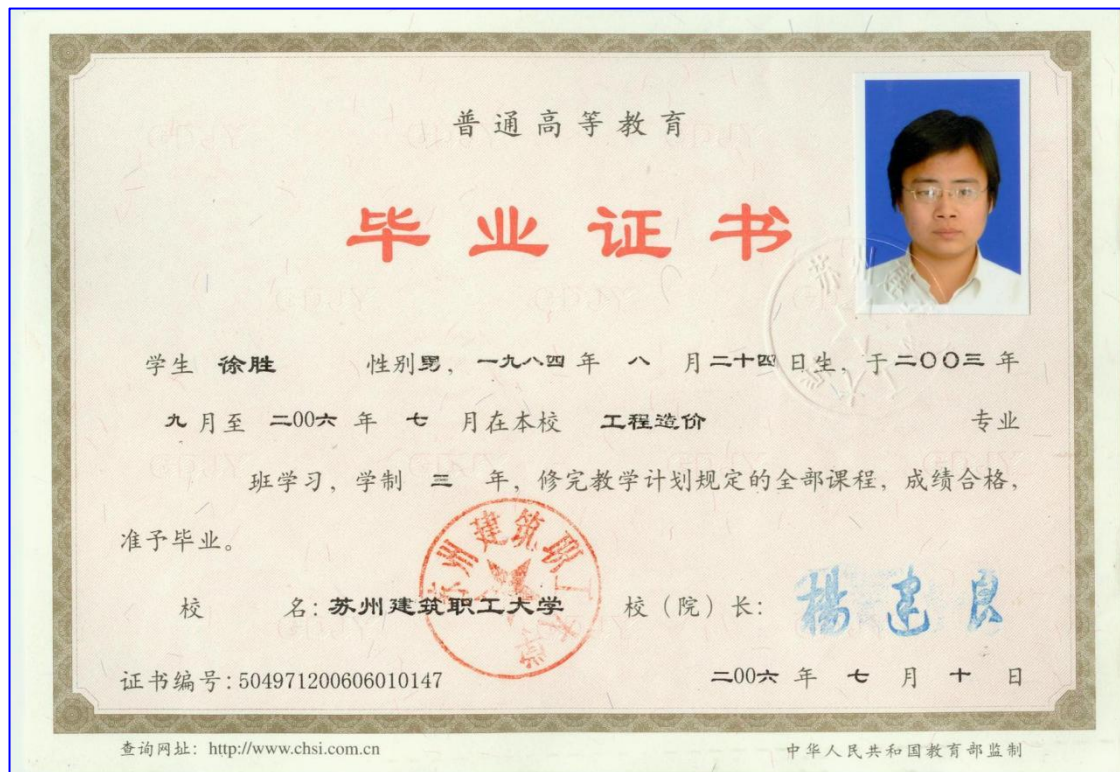 普通高等教育
毕业证书
学生 徐胜 性别男，一九八四年 八 月二十四日生，于二〇〇三年
九月至 二00六 年 七 月在本校 工程造价 专业
班学习，学制 三 年，修完教学计划规定的全部课程，成绩合格，
准予毕业。
苏州建筑职工大学
校 名：苏州建筑职工大学 校（院）长：楊建良
证书编号：504971200606010147 二00六 年 七 月 十 日
查询网址：http://www.chsi.com.cn 中华人民共和国教育部监制